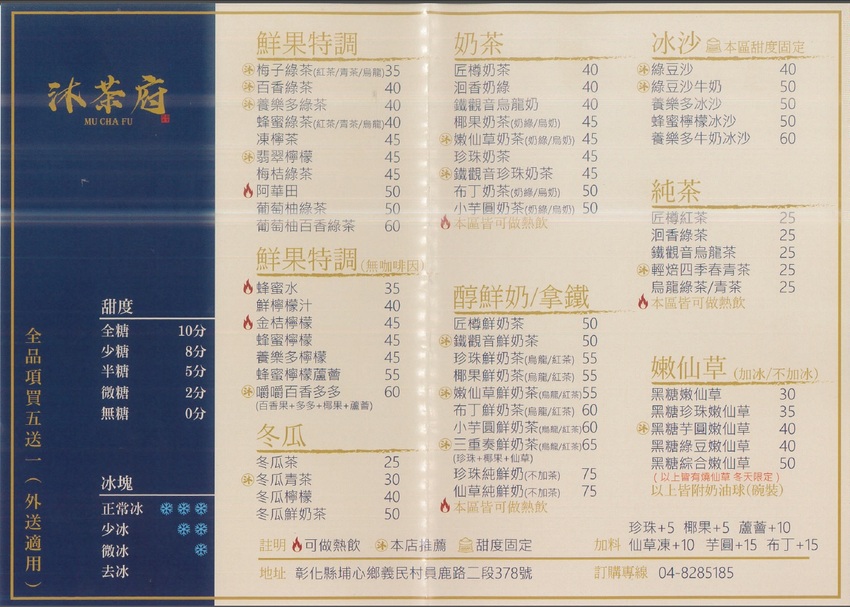 沐茶府
MU CHA FU
甜度
全糖 10分
少糖 8分
半糖 5分
微糖 2分
無糖 0分
冰塊
正常冰
少冰
微冰
去冰
全品項買五送一(外送適用)
鮮果特調
梅子綠茶(紅茶/青茶/烏龍)35
百香綠茶 40
養樂多綠茶 40
蜂蜜綠茶(紅茶/青茶/烏龍)40
凍檸茶 45
翡翠檸檬 45
梅桔綠茶 45
阿華田 50
葡萄柚綠茶 50
葡萄柚百香綠茶 60
鮮果特調(無咖啡因)
蜂蜜水 35
鮮檸檬汁 40
金桔檸檬 45
蜂蜜檸檬 45
養樂多檸檬 45
蜂蜜檸檬蘆薈 55
嚼嚼百香多多 60
(百香果+多多+椰果+蘆薈)
冬瓜
冬瓜茶 25
冬瓜青茶 30
冬瓜檸檬 40
冬瓜鮮奶茶 50
奶茶
匠樽奶茶 40
洄香奶綠 40
鐵觀音烏龍奶 40
椰果奶茶(奶綠/烏奶) 45
嫩仙草奶茶(奶綠/烏奶) 45
珍珠奶茶 45
鐵觀音珍珠奶茶 45
布丁奶茶(奶綠/烏奶) 50
小芋圓奶茶(奶綠/烏奶) 50
本區皆可做熱飲
醇鮮奶/拿鐵
匠樽鮮奶茶 50
鐵觀音鮮奶茶 50
珍珠鮮奶茶(烏龍/紅茶) 55
椰果鮮奶茶(烏龍/紅茶) 55
嫩仙草鮮奶茶(烏龍/紅茶)55
布丁鮮奶茶(烏龍/紅茶) 60
小芋圓鮮奶茶(烏龍/紅茶)60
三重奏鮮奶茶(烏龍/紅茶)65
(珍珠+椰果+仙草)
珍珠純鮮奶(不加茶) 75
仙草純鮮奶(不加茶) 75
本區皆可做熱飲
冰沙 本區甜度固定
綠豆沙 40
綠豆沙牛奶 50
養樂多冰沙 50
蜂蜜檸檬冰沙 50
養樂多牛奶冰沙 60
純茶
匠樽紅茶 25
洄香綠茶 25
鐵觀音烏龍茶 25
輕焙四季春青茶 25
烏龍綠茶/青茶 25
本區皆可做熱飲
嫩仙草(加冰/不加冰)
黑糖嫩仙草 30
黑糖珍珠嫩仙草 35
黑糖芋圓嫩仙草 40
黑糖綠豆嫩仙草 40
黑糖綜合嫩仙草 50
(以上皆有燒仙草 冬天限定)
以上皆附奶油球(碗裝)
珍珠+5 椰果+5 蘆薈+10
加料 仙草凍+10 芋圓+15 布丁+15
註明 可做熱飲 沐本店推薦 甜度固定
地址 彰化縣埔心鄉義民村員鹿路二段378號 訂購專線 04-8285185